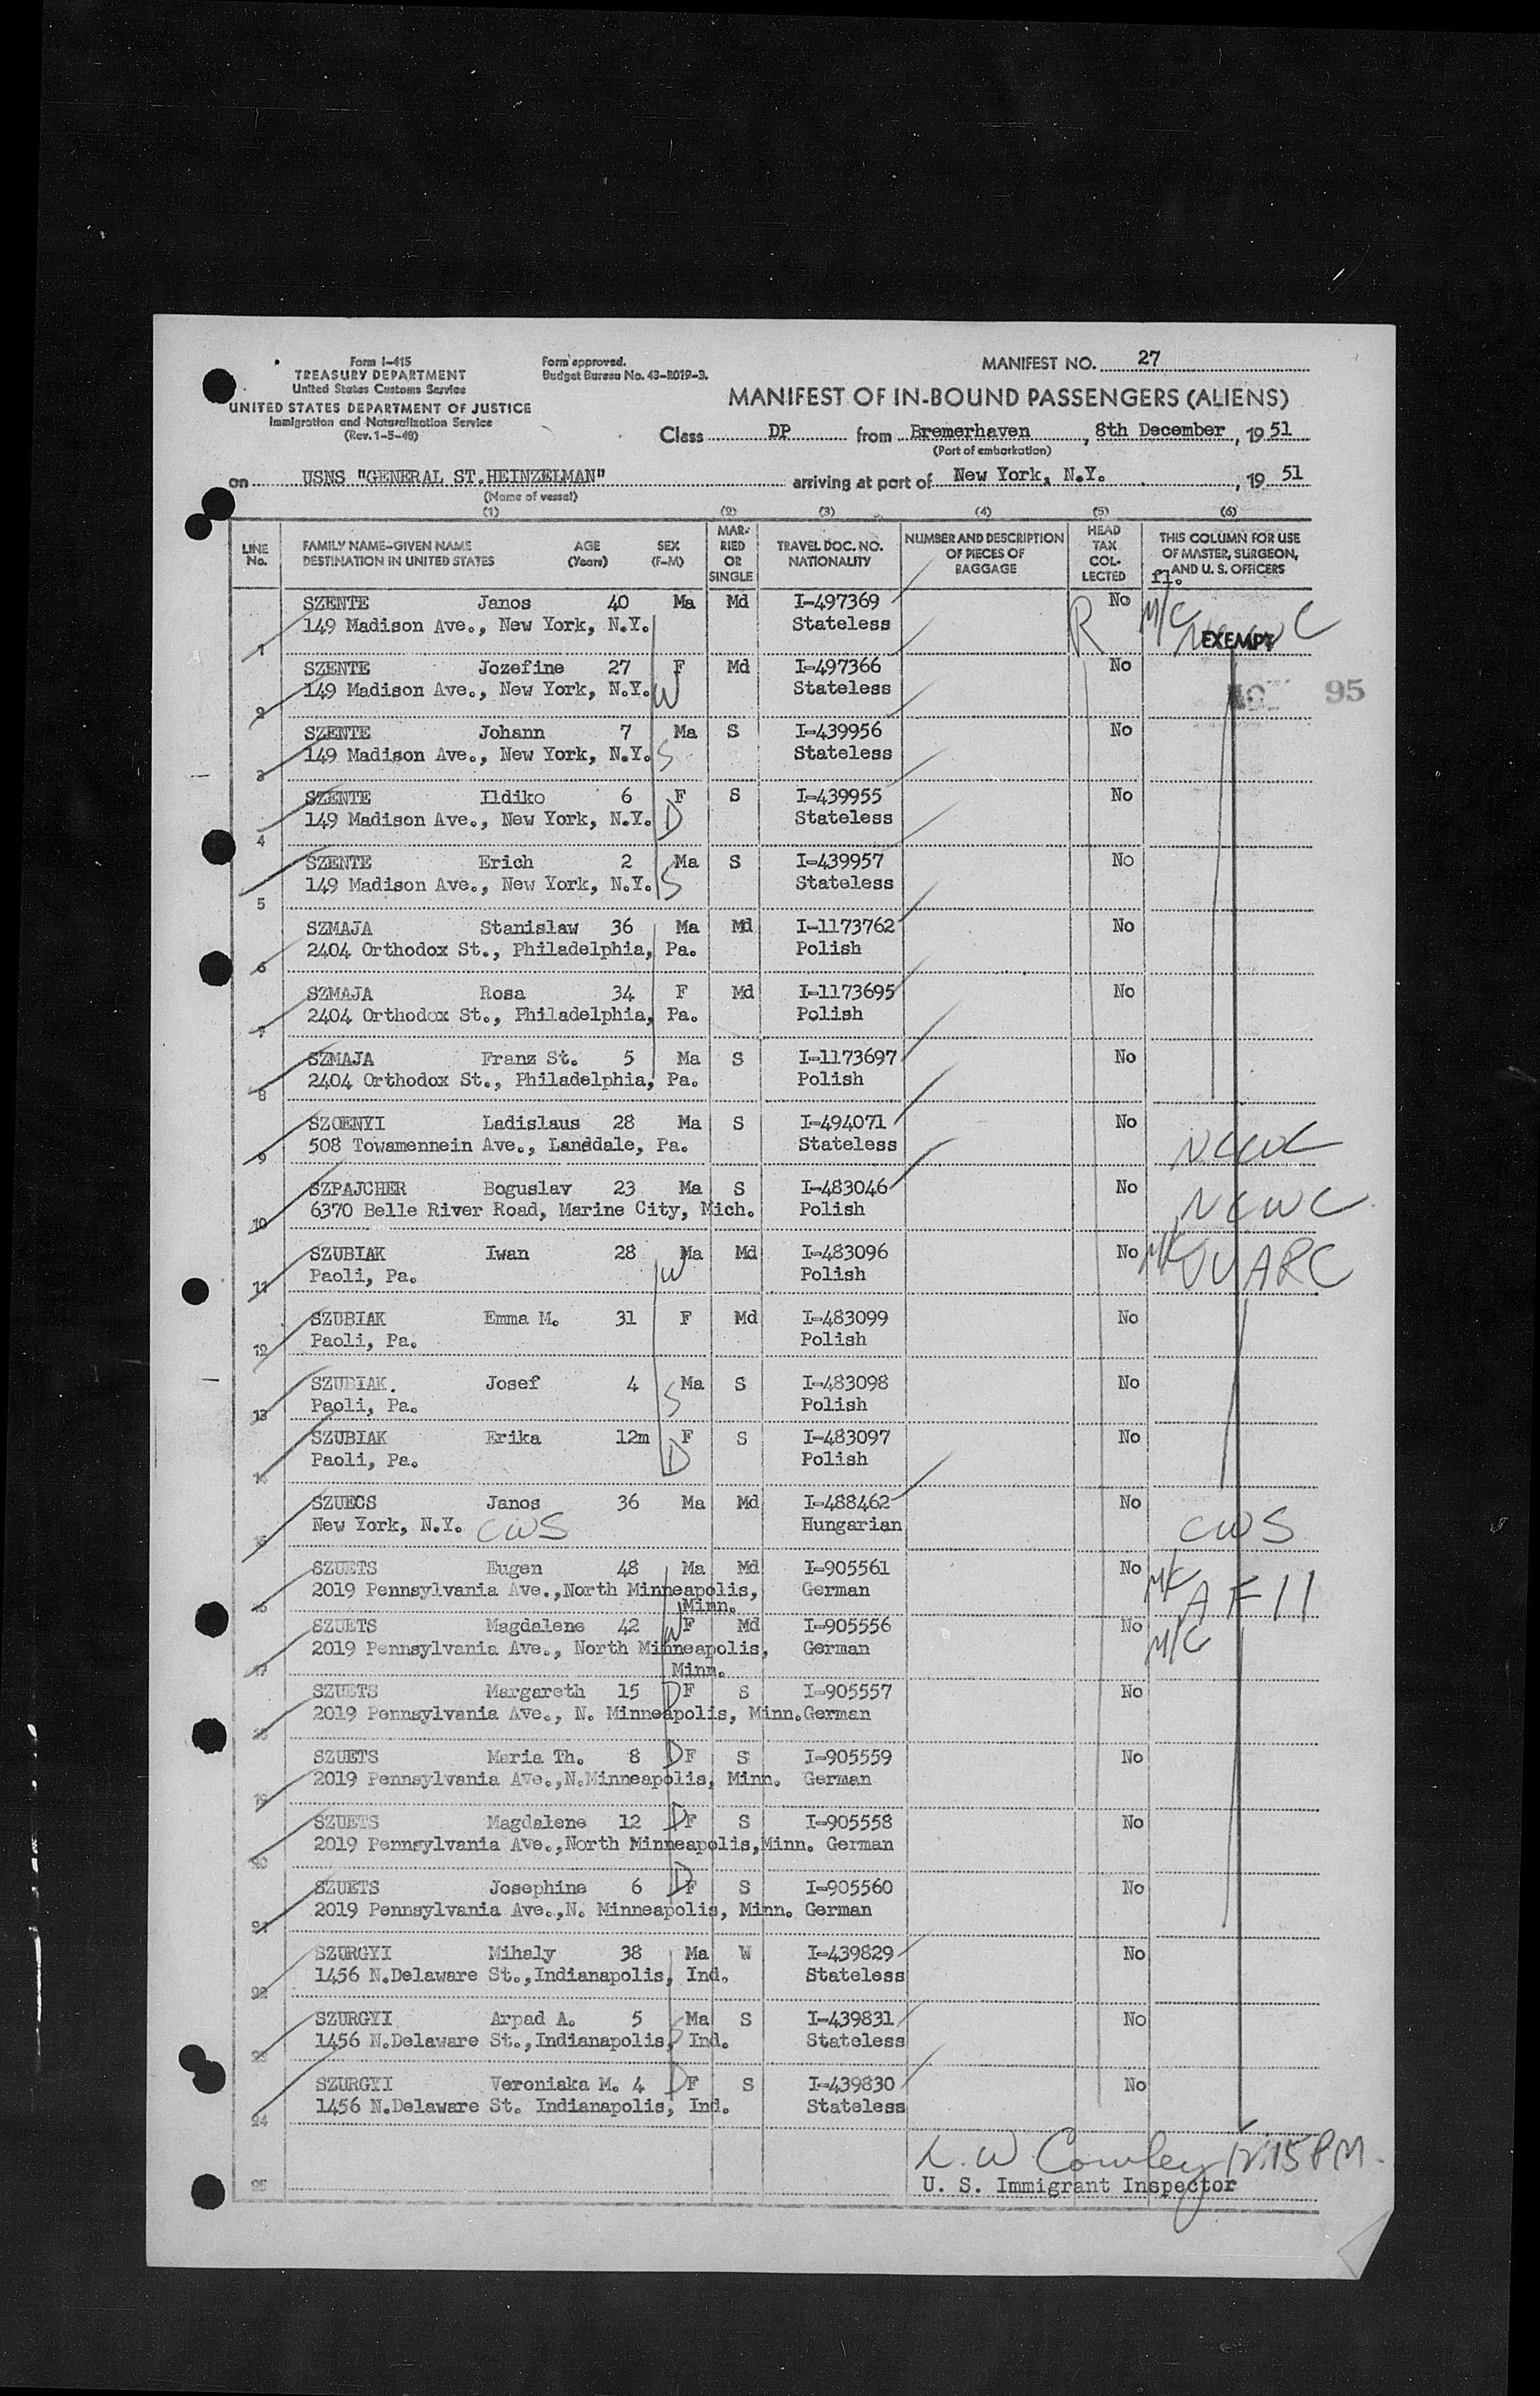 Form I-415
TREASURY DEPARTMENT
United States Customs Service
UNITED STATES DEPARTMENT OF JUSTICE
Immigration and Naturalization Service
(Rev. 1-5-48)
Form approved.
Budget Bureau No. 43-R019-3.
MANIFEST NO. 27
MANIFEST OF IN-BOUND PASSENGERS (ALIENS)
Class DP from Bremerhaven, 8th December, 1951
(Port of embarkation)
on USNS "GENERAL ST.HEINZELMAN" arriving at port of New York, N.Y. , 1951
(Name of vessel)
(1) (2) (3) (4) (5) (6)
LINE No. FAMILY NAME—GIVEN NAME DESTINATION IN UNITED STATES AGE (Years) SEX (F-M) MARRIED OR SINGLE TRAVEL DOC. NO. NATIONALITY NUMBER AND DESCRIPTION OF PIECES OF BAGGAGE HEAD TAX COLLECTED THIS COLUMN FOR USE OF MASTER, SURGEON, AND U. S. OFFICERS
1 SZENTE Janos 40 Ma Md I-497369 No R M/C
149 Madison Ave., New York, N.Y. Stateless EXEMPT
2 SZENTE Jozefine 27 F Md I-497366 No
149 Madison Ave., New York, N.Y. W Stateless 95
3 SZENTE Johann 7 Ma S I-439956 No
149 Madison Ave., New York, N.Y. S Stateless
4 SZENTE Ildiko 6 F S I-439955 No
149 Madison Ave., New York, N.Y. D Stateless
5 SZENTE Erich 2 Ma S I-439957 No
149 Madison Ave., New York, N.Y. S Stateless
6 SZMAJA Stanislaw 36 Ma Md I-1173762 No
2404 Orthodox St., Philadelphia, Pa. Polish
7 SZMAJA Rosa 34 F Md I-1173695 No
2404 Orthodox St., Philadelphia, Pa. Polish
8 SZMAJA Franz St. 5 Ma S I-1173697 No
2404 Orthodox St., Philadelphia, Pa. Polish
9 SZOENYI Ladislaus 28 Ma S I-494071 No
508 Towamennein Ave., Lansdale, Pa. Stateless NCWC
10 SZPAJCHER Boguslav 23 Ma S I-483046 No
6370 Belle River Road, Marine City, Mich. Polish NCWC
11 SZUBIAK Iwan 28 Ma Md I-483096 No M/C UUARC
Paoli, Pa. W Polish
12 SZUBIAK Emma M. 31 F Md I-483099 No
Paoli, Pa. Polish
13 SZUBIAK. Josef 4 Ma S I-483098 No
Paoli, Pa. S Polish
14 SZUBIAK Erika 12m F S I-483097 No
Paoli, Pa. D Polish
15 SZUECS Janos 36 Ma Md I-488462 No
New York, N.Y. CWS Hungarian CWS
16 SZUETS Eugen 48 Ma Md I-905561 No M/C
2019 Pennsylvania Ave.,North Minneapolis, German
Minn.
17 SZUETS Magdalene 42 W F Md I-905556 No M/C
2019 Pennsylvania Ave., North Minneapolis, German
Minn.
18 SZUETS Margareth 15 D F S I-905557 No
2019 Pennsylvania Ave., N. Minneapolis, Minn. German
19 SZUETS Maria Th. 8 D F S I-905559 No
2019 Pennsylvania Ave.,N.Minneapolis, Minn. German
20 SZUETS Magdalene 12 D F S I-905558 No
2019 Pennsylvania Ave.,North Minneapolis,Minn. German
21 SZUETS Josephine 6 D F S I-905560 No
2019 Pennsylvania Ave.,N. Minneapolis, Minn. German
22 SZURGYI Mihaly 38 Ma W I-439829 No
1456 N.Delaware St.,Indianapolis, Ind. Stateless
23 SZURGYI Arpad A. 5 Ma S I-439831 No
1456 N.Delaware St.,Indianapolis, S Ind. Stateless
24 SZURGYI Veroniaka M. 4 D F S I-439830 No
1456 N.Delaware St. Indianapolis, Ind. Stateless
25
L. W Cowley 12:15 PM.
U. S. Immigrant Inspector